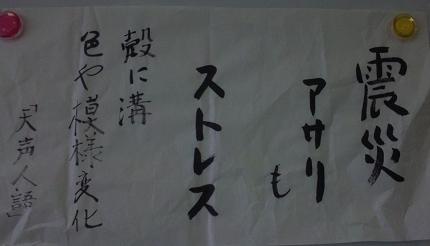 震災
アサリも
ストレス
殻に溝
色や模様変化
「天声人語」